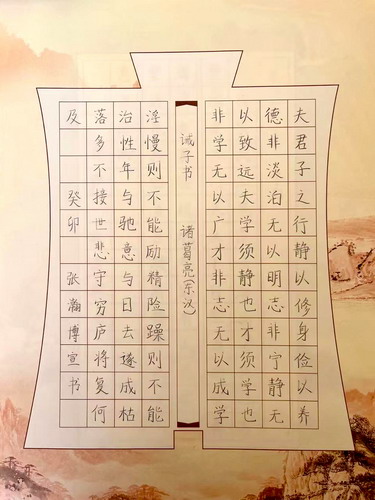 夫君子之行静以修身俭以养
德非淡泊无以明志非宁静无
以致远夫学须静也才须学也
非学无以广才非志无以成学
诫子书 诸葛亮(东汉)
淫慢则不能励精险躁则不能
治性年与驰意与日去遂成枯
落多不接世悲守穷庐将复何
及 癸卯 张瀚博宣书